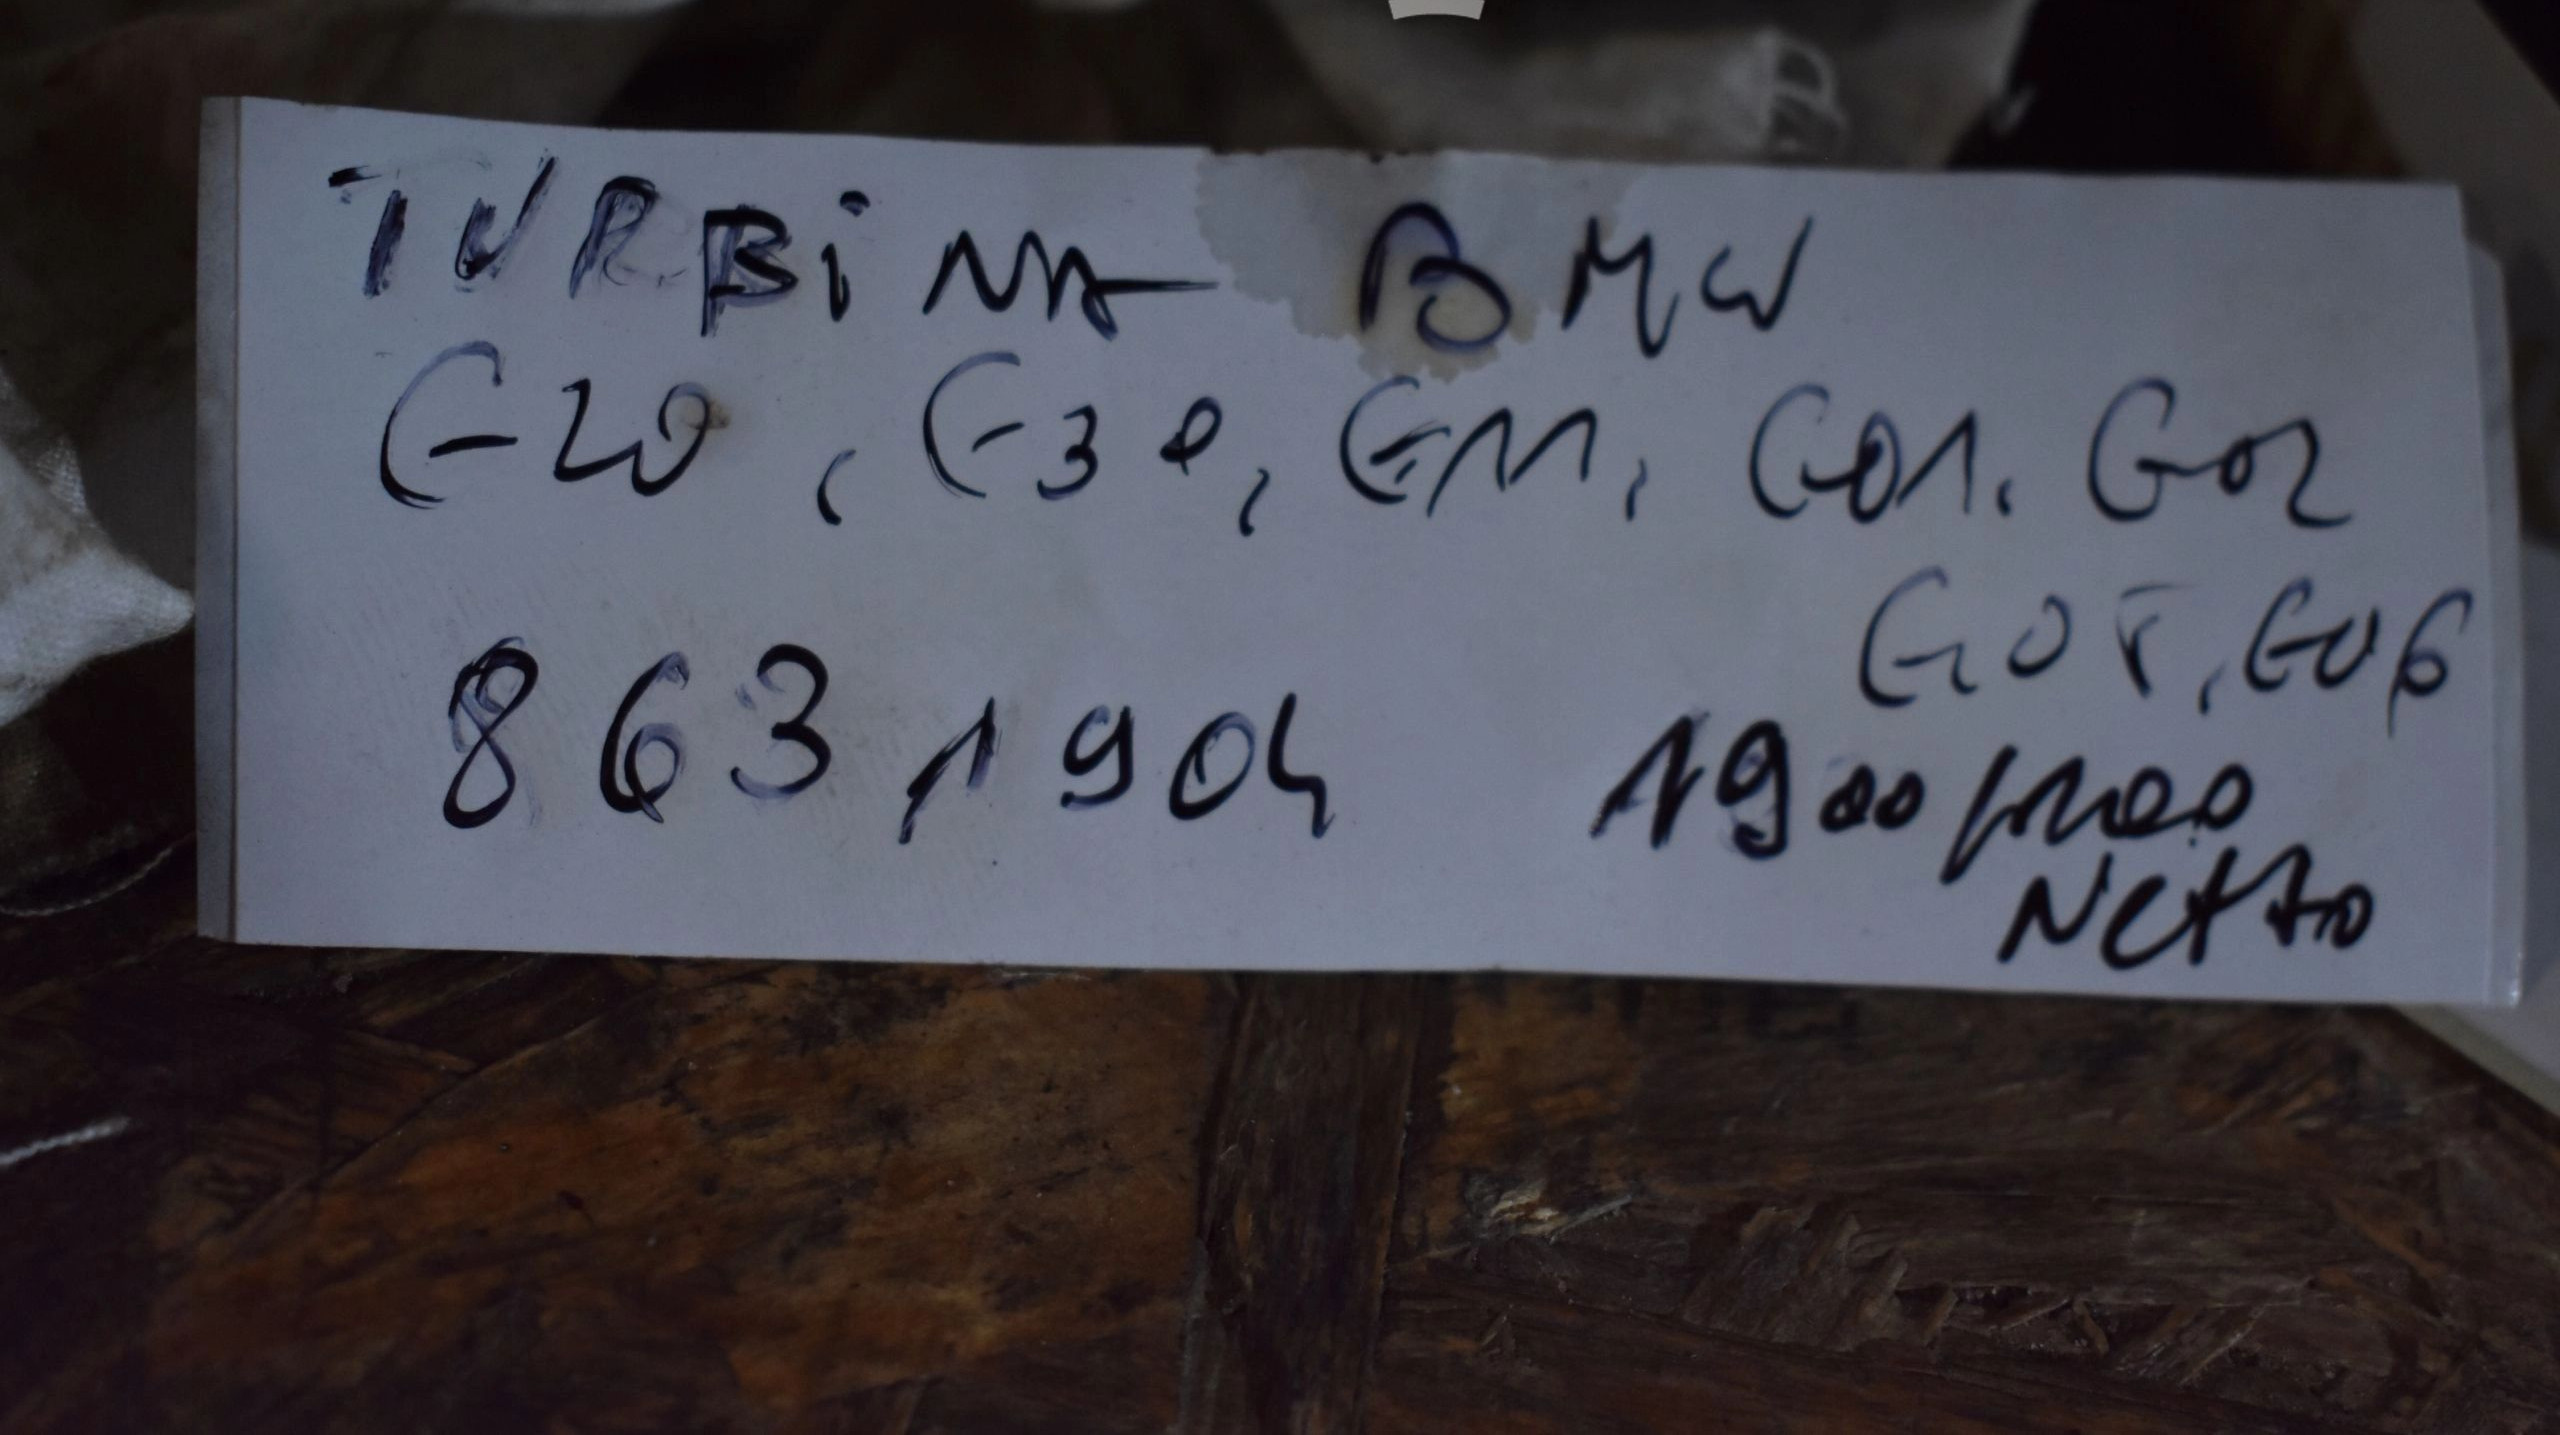 TURBINA BMW
G20, G30, G11, G01, G02
G05, G06
8631904
1900/
Netto